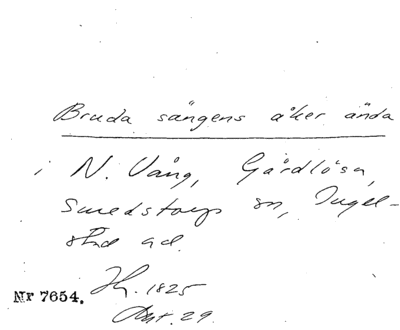 Bruda sängens åker ända
i N. Vång, Gårdlösa,
Smedstorps sn, Ingel-
stad hd.
Nr 7654.
1825
Akt. 29